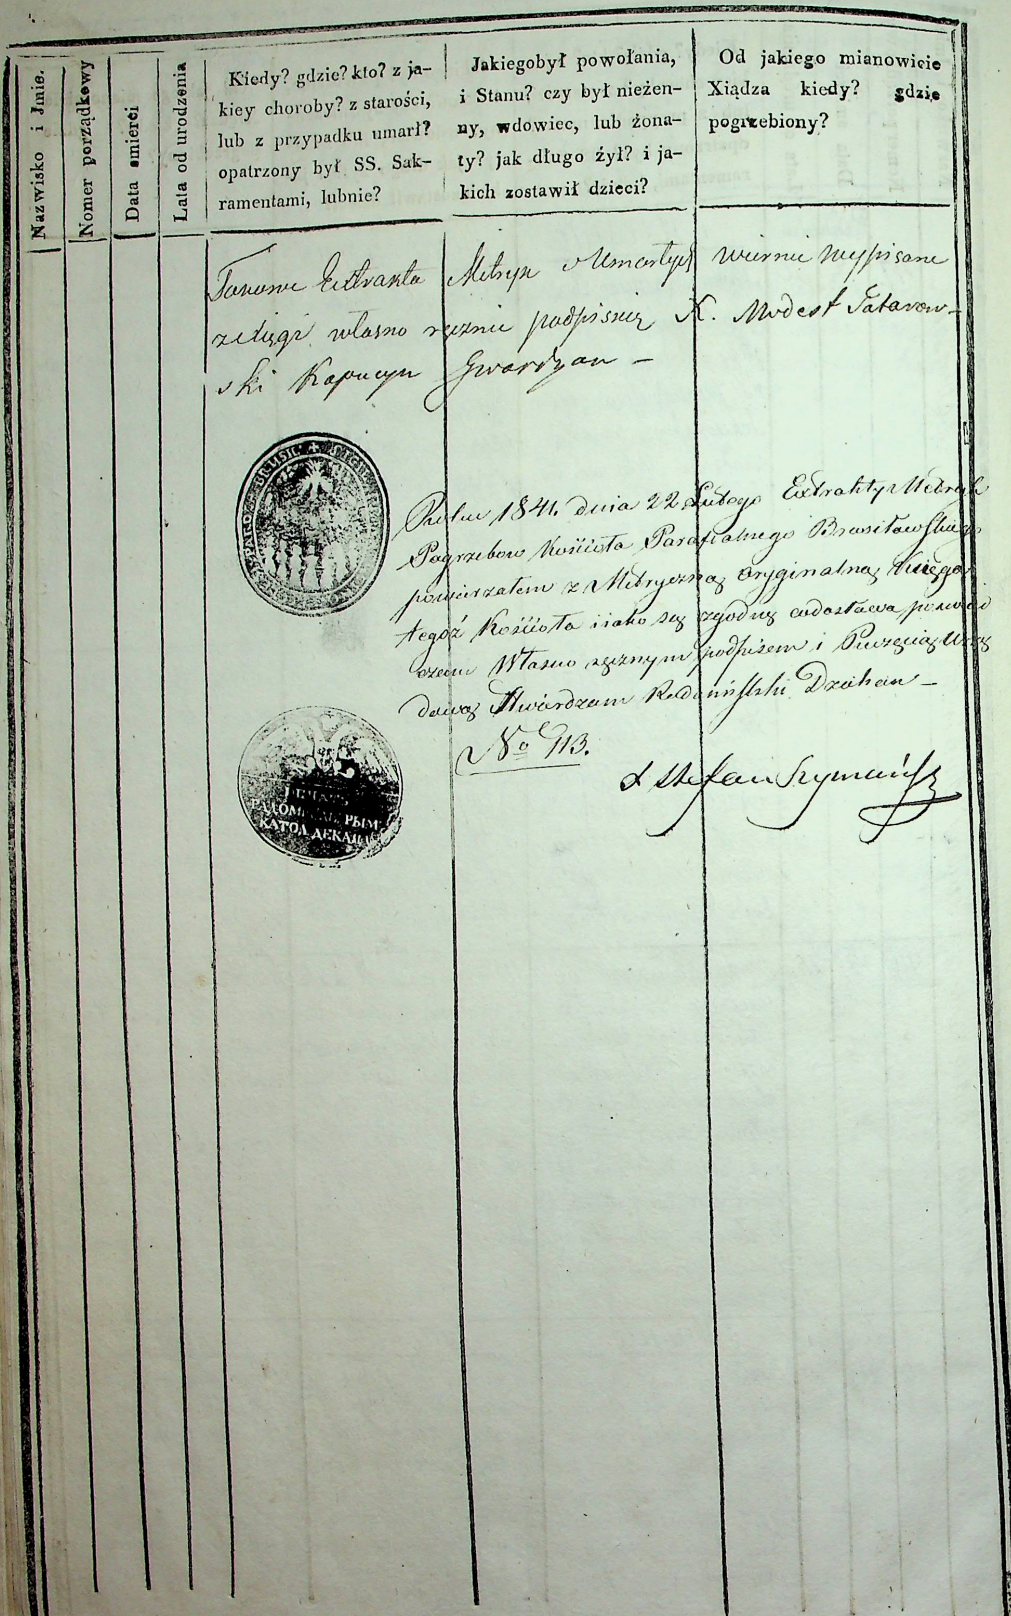 Nazwisko i Jmie.
Nomer porządkowy
Data smierci
Lata od urodzenia
Kiedy? gdzie? kto? z ja-
kiey choroby? z starości,
lub z przypadku umarł?
opatrzony był SS. Sak-
ramentami, lubnie?
Jakiegobył powołania,
i Stanu? czy był nieżen-
ny, wdowiec, lub żona-
ty? jak długo żył? i ja-
kich zostawił dzieci?
Od jakiego mianowicie
Xiądza kiedy? gdzie
pogrzebiony?
Takowe Extrakta Metryk Umarłych wiernie wypisane
z Xięgi własno ręcznie podpisuię X. Modest Tatarow-
ski Kapucyn Gwardyan —
Roku 1841. dnia 22 Lutego Extrakty Metryk
Pogrzebow Kościoła Parafialnego Brasiławskiego
powierzałem z Metryczną oryginalną Księgą
tegoż Kościoła i iako są zgodne
Własno ręcznym podpisem i Pieczęcią Urzę
dową Stwierdzam Radomiślski Dziekan —
No 113.
X Stefan Szymański
ПЕЧАТЬ
РАДОМ РЫМ:
КАТОЛ ДЕКАН